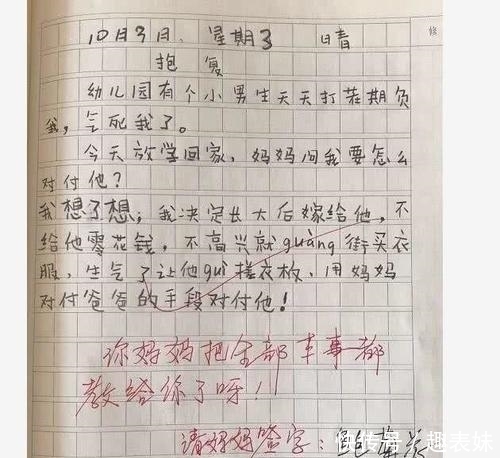 10月3日、星期3 日晴
抱复
幼儿园有个小男生天天打茬期负
我，气死我了。
今天放学回家，妈妈问我要怎么
对付他？
我想了想，我决定长大后嫁给他，不
给他零花钱，不高兴就guàng街买衣
服，生气了让他guì搓衣板，用妈妈
对付爸爸的手段对付他！
你妈妈把全部本事都
教给你了呀！
请妈妈签字：
快传号 / 趣表妹
修